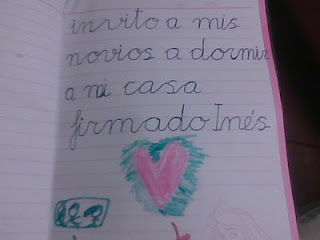 invito a mis
novios a dormir
a mi casa
firmado Inés